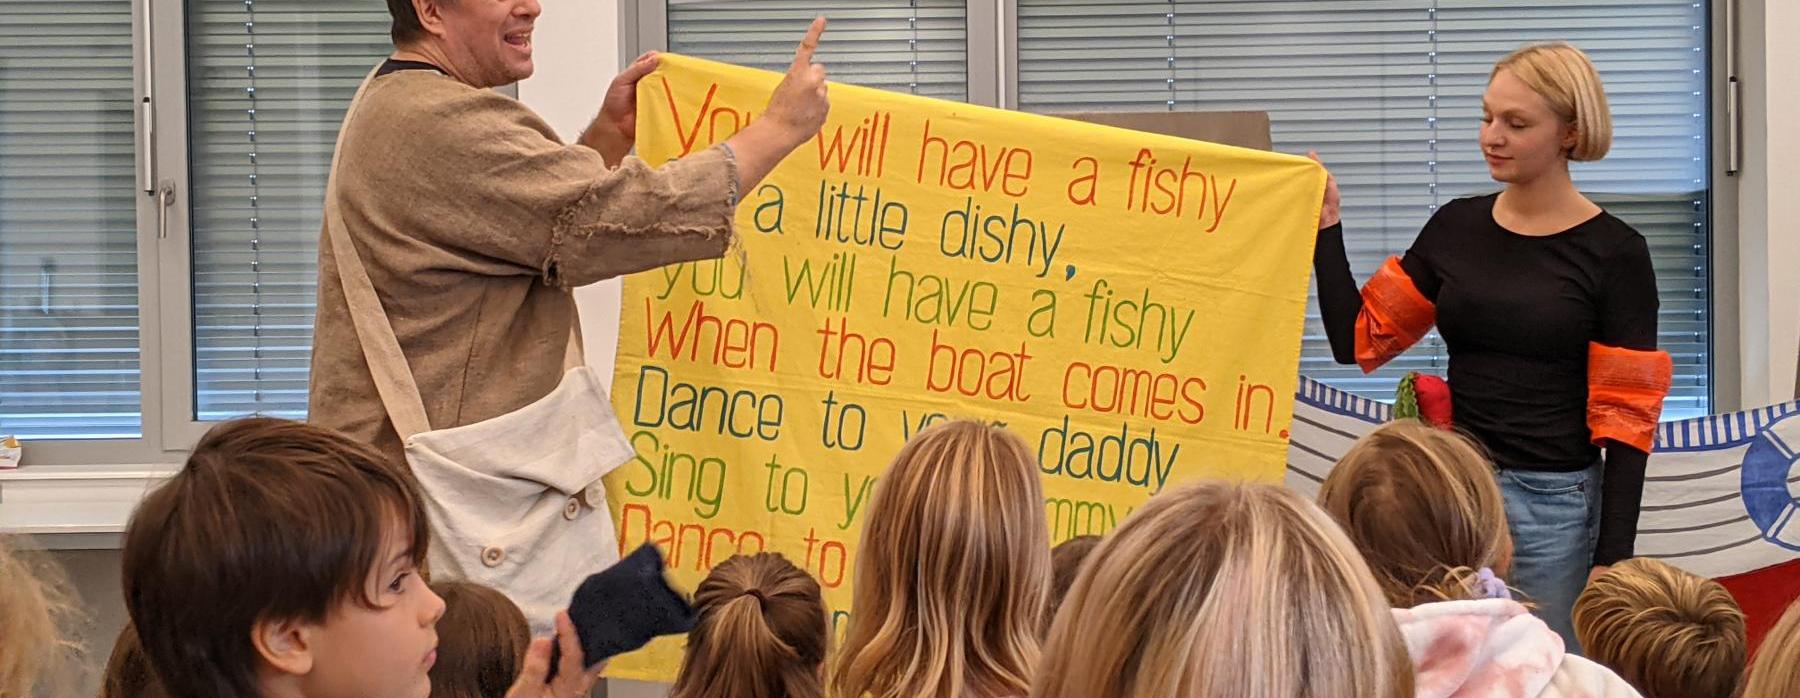 You will have a fishy
a little dishy,
you will have a fishy
When the boat comes in.
Dance to your daddy
Sing to
Dance to